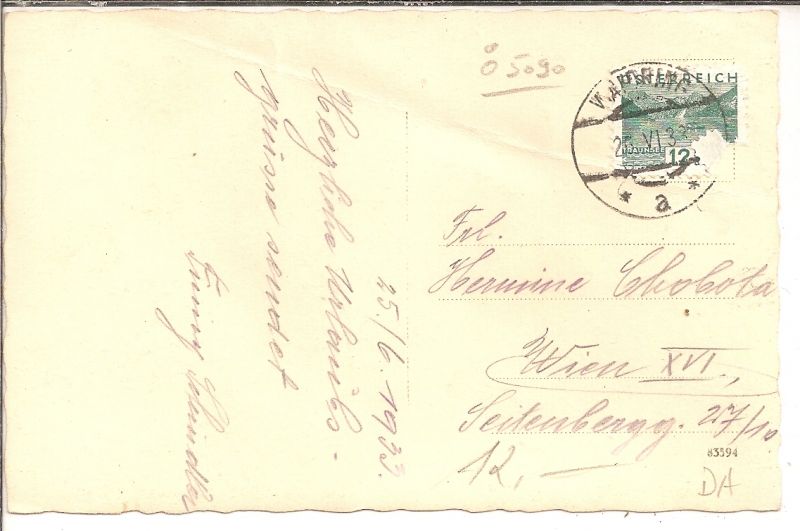 Ö 5090
ÖSTERREICH
TRAUNSEE
12
25. VI. 33
* a *
25./6. 1933.
Herzliche Urlaubs-
grüsse sendet
Schindler
Frl.
Hermine Chobota
Wien XVI.,
Seitenbergg. 27/10
83594
12,–
DA